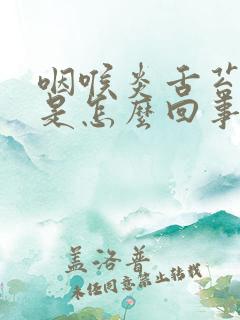 咽喉炎舌苔
是怎麼回事
盖洛普
未经同意禁止转载